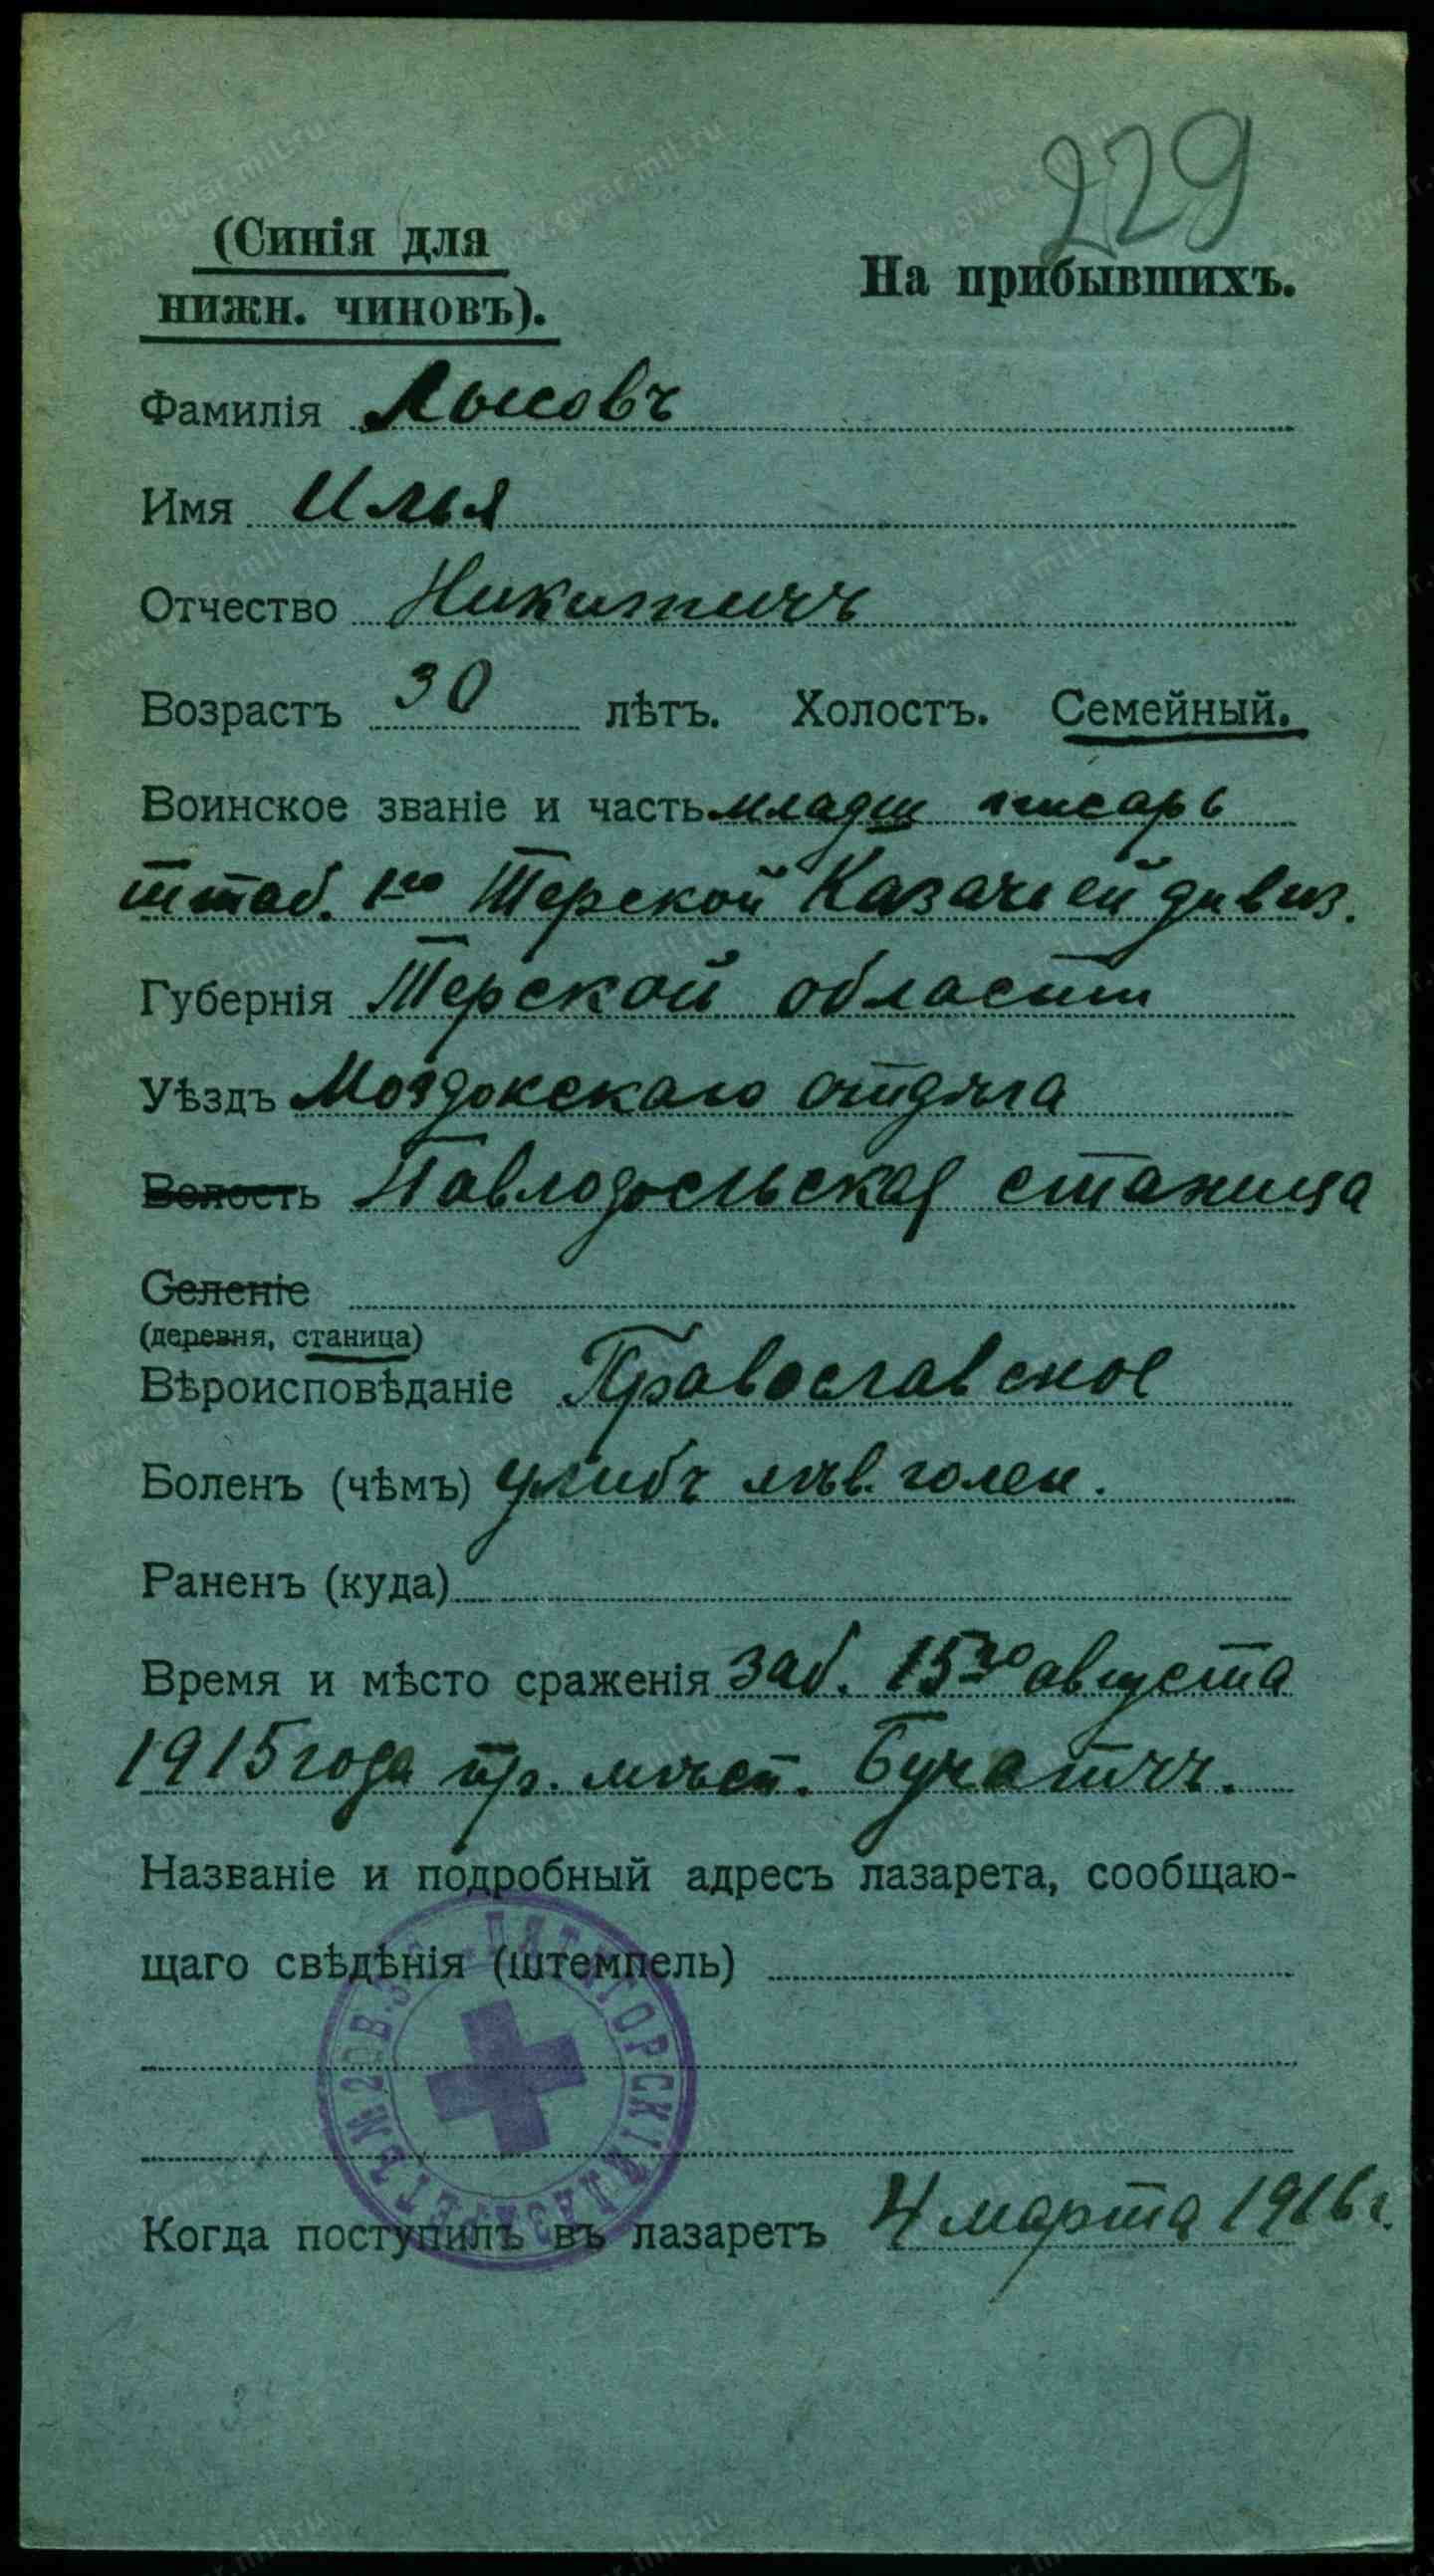 229
(Синія для
нижн. чиновъ).
На прибывшихъ.
Фамилія Лысовъ
Имя Илья
Отчество Никитичъ
Возрастъ 30 лѣтъ. Холостъ. Семейный.
Воинское званіе и часть младш писарь
штаб. 1го Терской Казачьей дивиз.
Губернія Терской области
Уѣздъ Моздокскаго отдѣла
Волость Павлодольская станица
Селеніе
(деревня, станица)
Вѣроисповѣданіе Православное
Боленъ (чѣмъ) ушибъ лѣв. голен.
Раненъ (куда)
Время и мѣсто сраженія заб. 15го августа
1915 года пр. мѣст. Бучачъ.
Названіе и подробный адресъ лазарета, сообщаю-
щаго свѣдѣнія (штемпель)
ПЯТИГОРСКІЙ ЛАЗАРЕТЪ
Когда поступилъ въ лазаретъ 4 марта 1916 г.
www.gwar.mil.ru